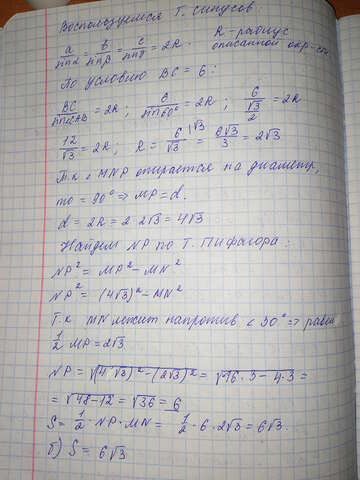 Воспользуемся Т. синусов:
a/sinα = b/sinβ = c/sinγ = 2R. R - радиус
описанной окр-сти
По условию BC = 6:
BC/sin∠CAB = 2R; 6/sin60° = 2R; 6/(√3/2) = 2R
12/√3 = 2R; R = 6/√3 |√3 = 6√3/3 = 2√3
Т.к ∠ MNP опирается на диаметр,
то = 90° => MP = d.
d = 2R = 2·2√3 = 4√3
Найдем NP по Т. Пифагора:
NP² = MP² - MN²
NP² = (4√3)² - MN²
Т.к MN лежит напротив ∠ 30° => равен
1/2 MP = 2√3
NP = √(4√3)² - (2√3)² = √16·3 - 4·3 =
= √48-12 = √36 = 6
S = 1/2 · NP · MN = 1/2 · 6 · 2√3 = 6√3.
б) S = 6√3